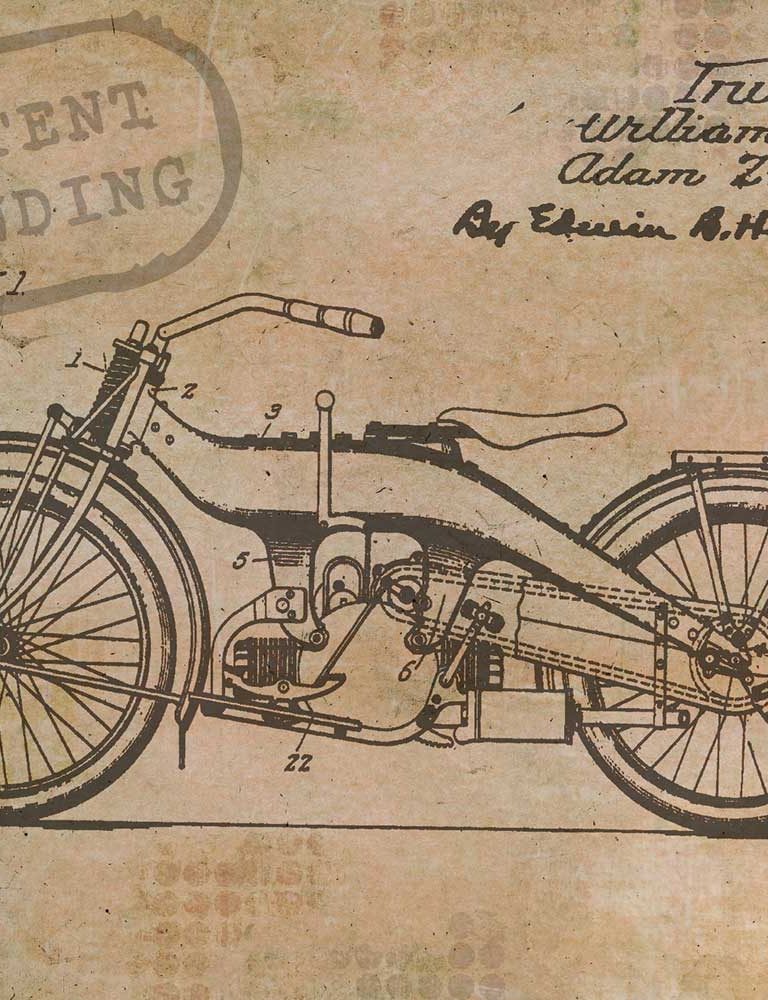 TENT
NDING
Inv
William
Adam Z
By Edwin B. H
1.
1
2
3
5
6
22